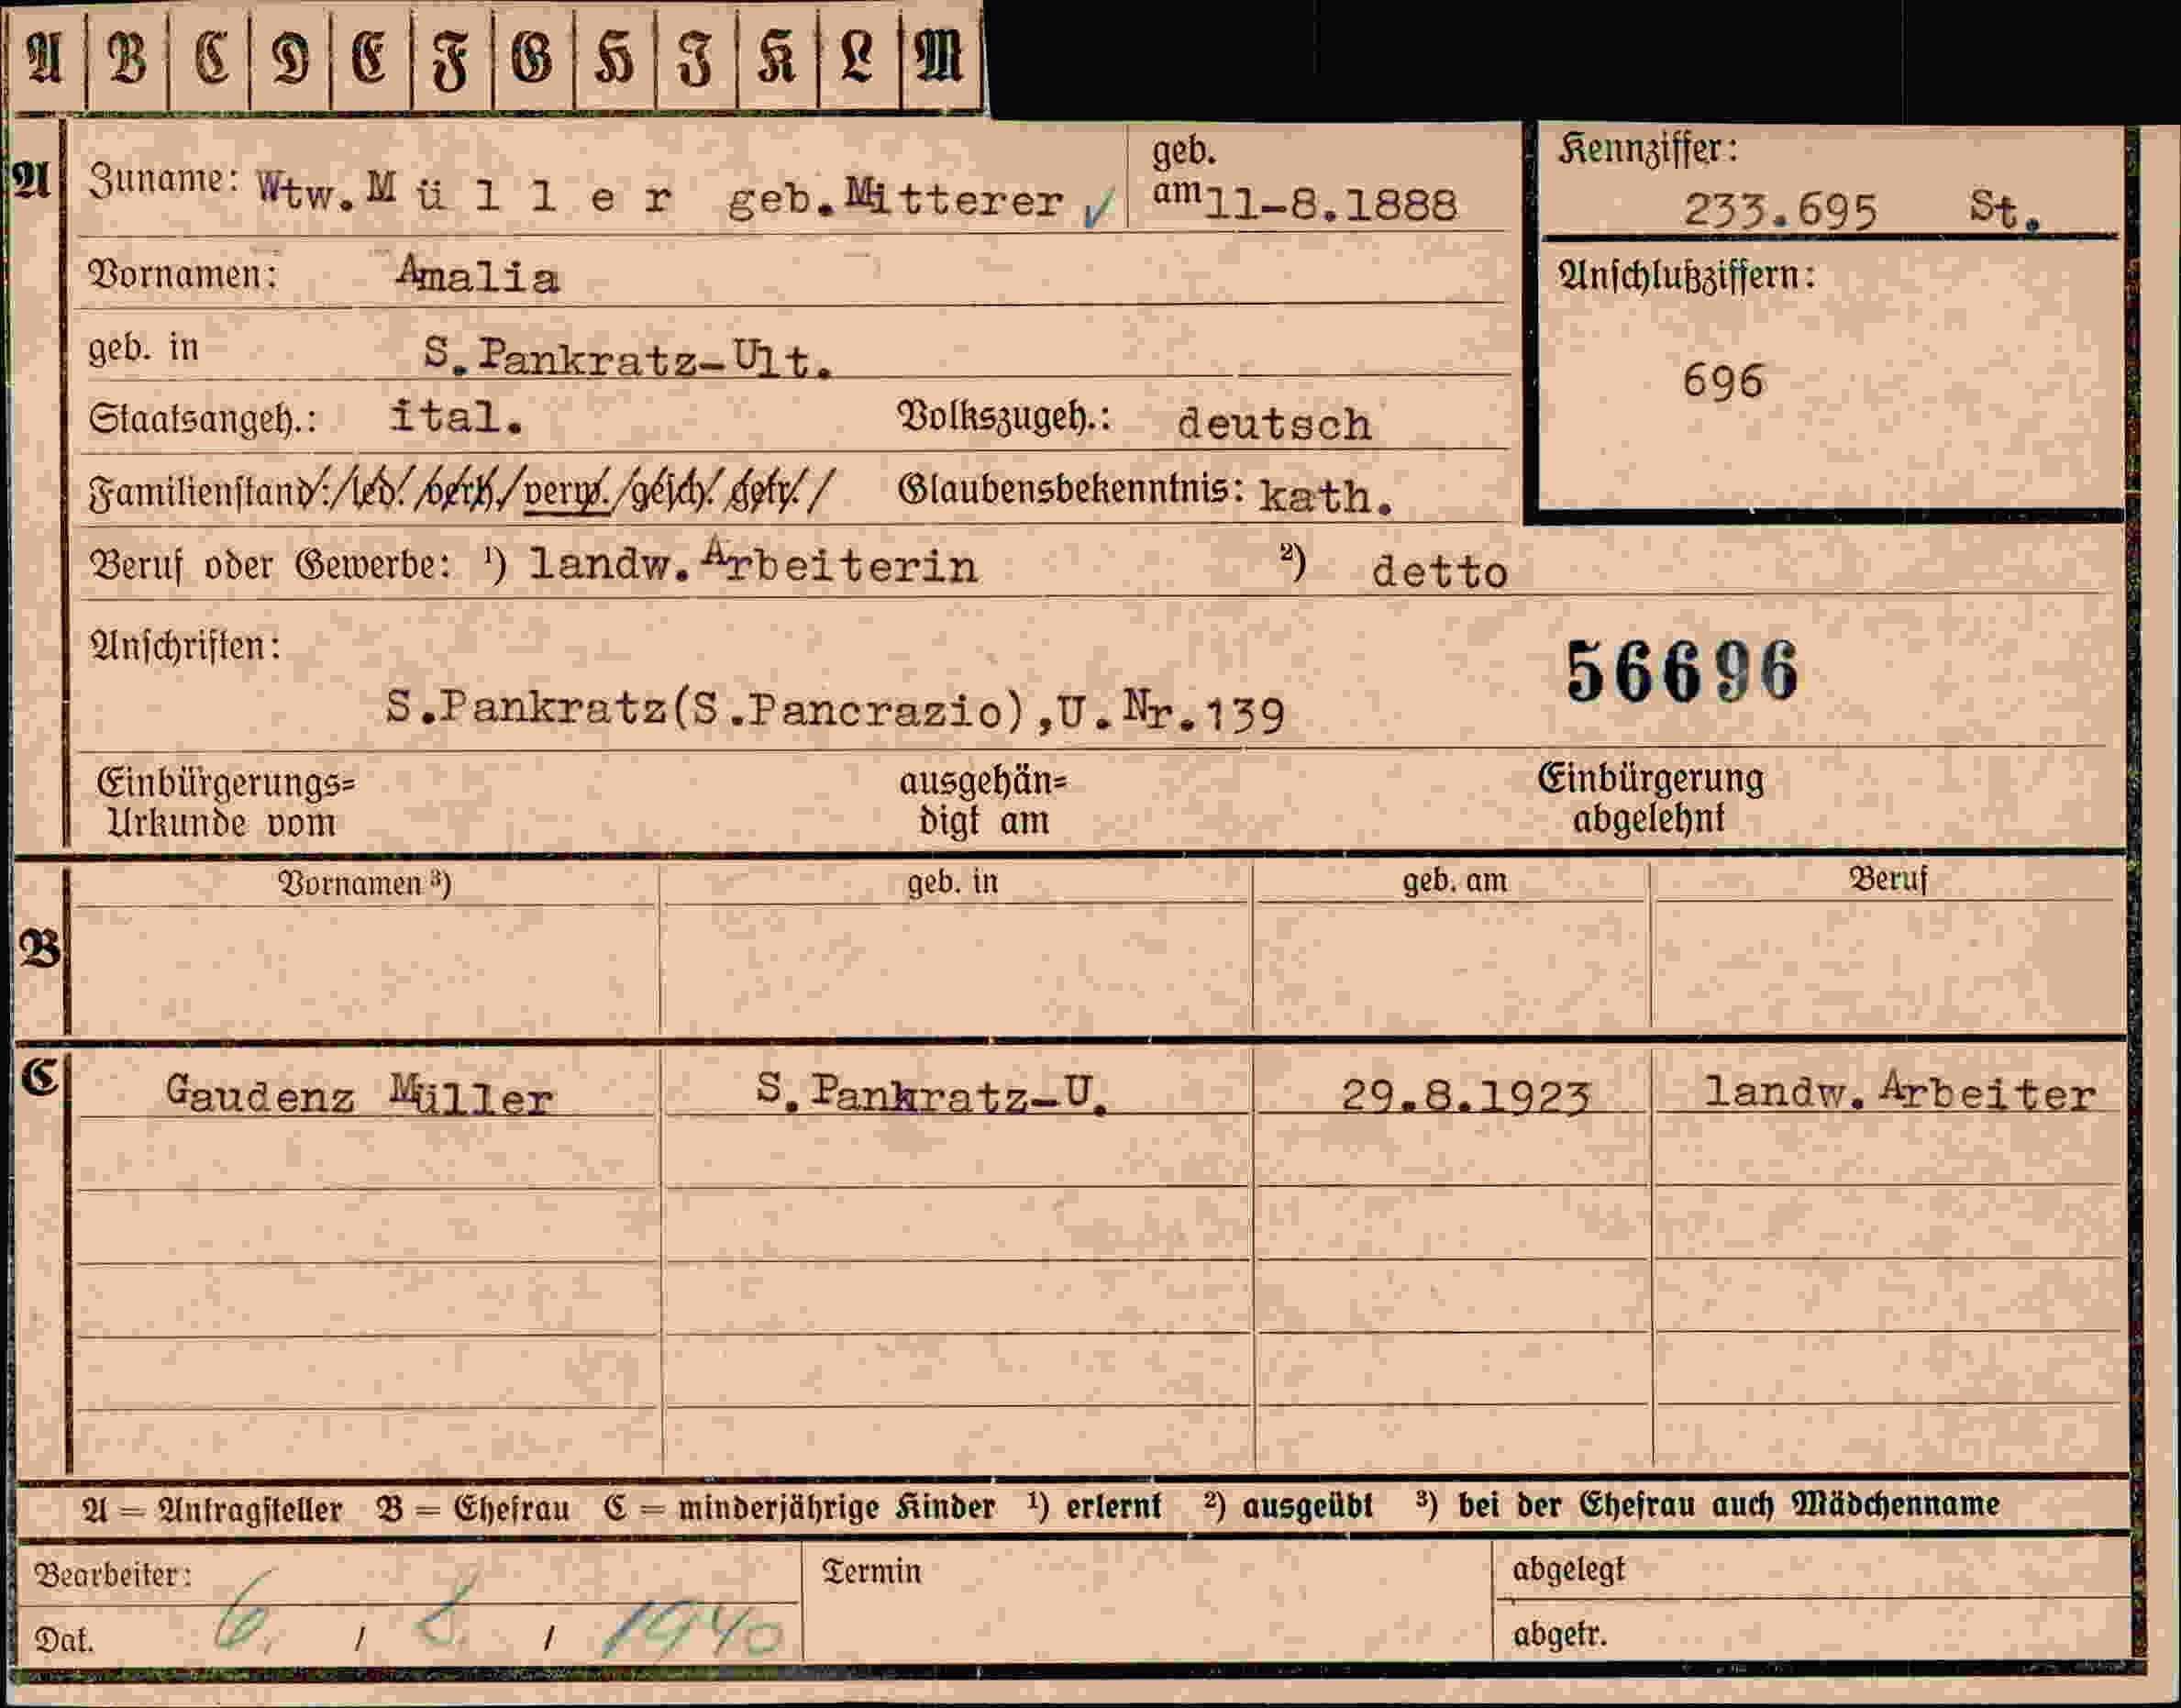 A B C D E F G H I K L M
A Zuname: Wtw. Müller geb. Mitterer ✓ geb. am 11-8.1888
Kennziffer: 233.695 St.
Vornamen: Amalia
Anschlußziffern:
geb. in S. Pankratz-Ult.
696
Staatsangeh.: ital. Volkszugeh.: deutsch
Familienstand: / led. / verh. / verw. / gesch. / getr. / Glaubensbekenntnis: kath.
Beruf oder Gewerbe: ¹) landw. Arbeiterin ²) detto
Anschriften:
56696
S.Pankratz(S.Pancrazio),U.Nr.139
Einbürgerungs= ausgehän= Einbürgerung
Urkunde vom digt am abgelehnt
B Vornamen ³) geb. in geb. am Beruf
C Gaudenz Müller S. Pankratz-U. 29.8.1923 landw. Arbeiter
A = Antragsteller B = Ehefrau C = minderjährige Kinder ¹) erlernt ²) ausgeübt ³) bei der Ehefrau auch Mädchenname
Bearbeiter: Termin abgelegt
Dat. 6. / / 1940 abgetr.